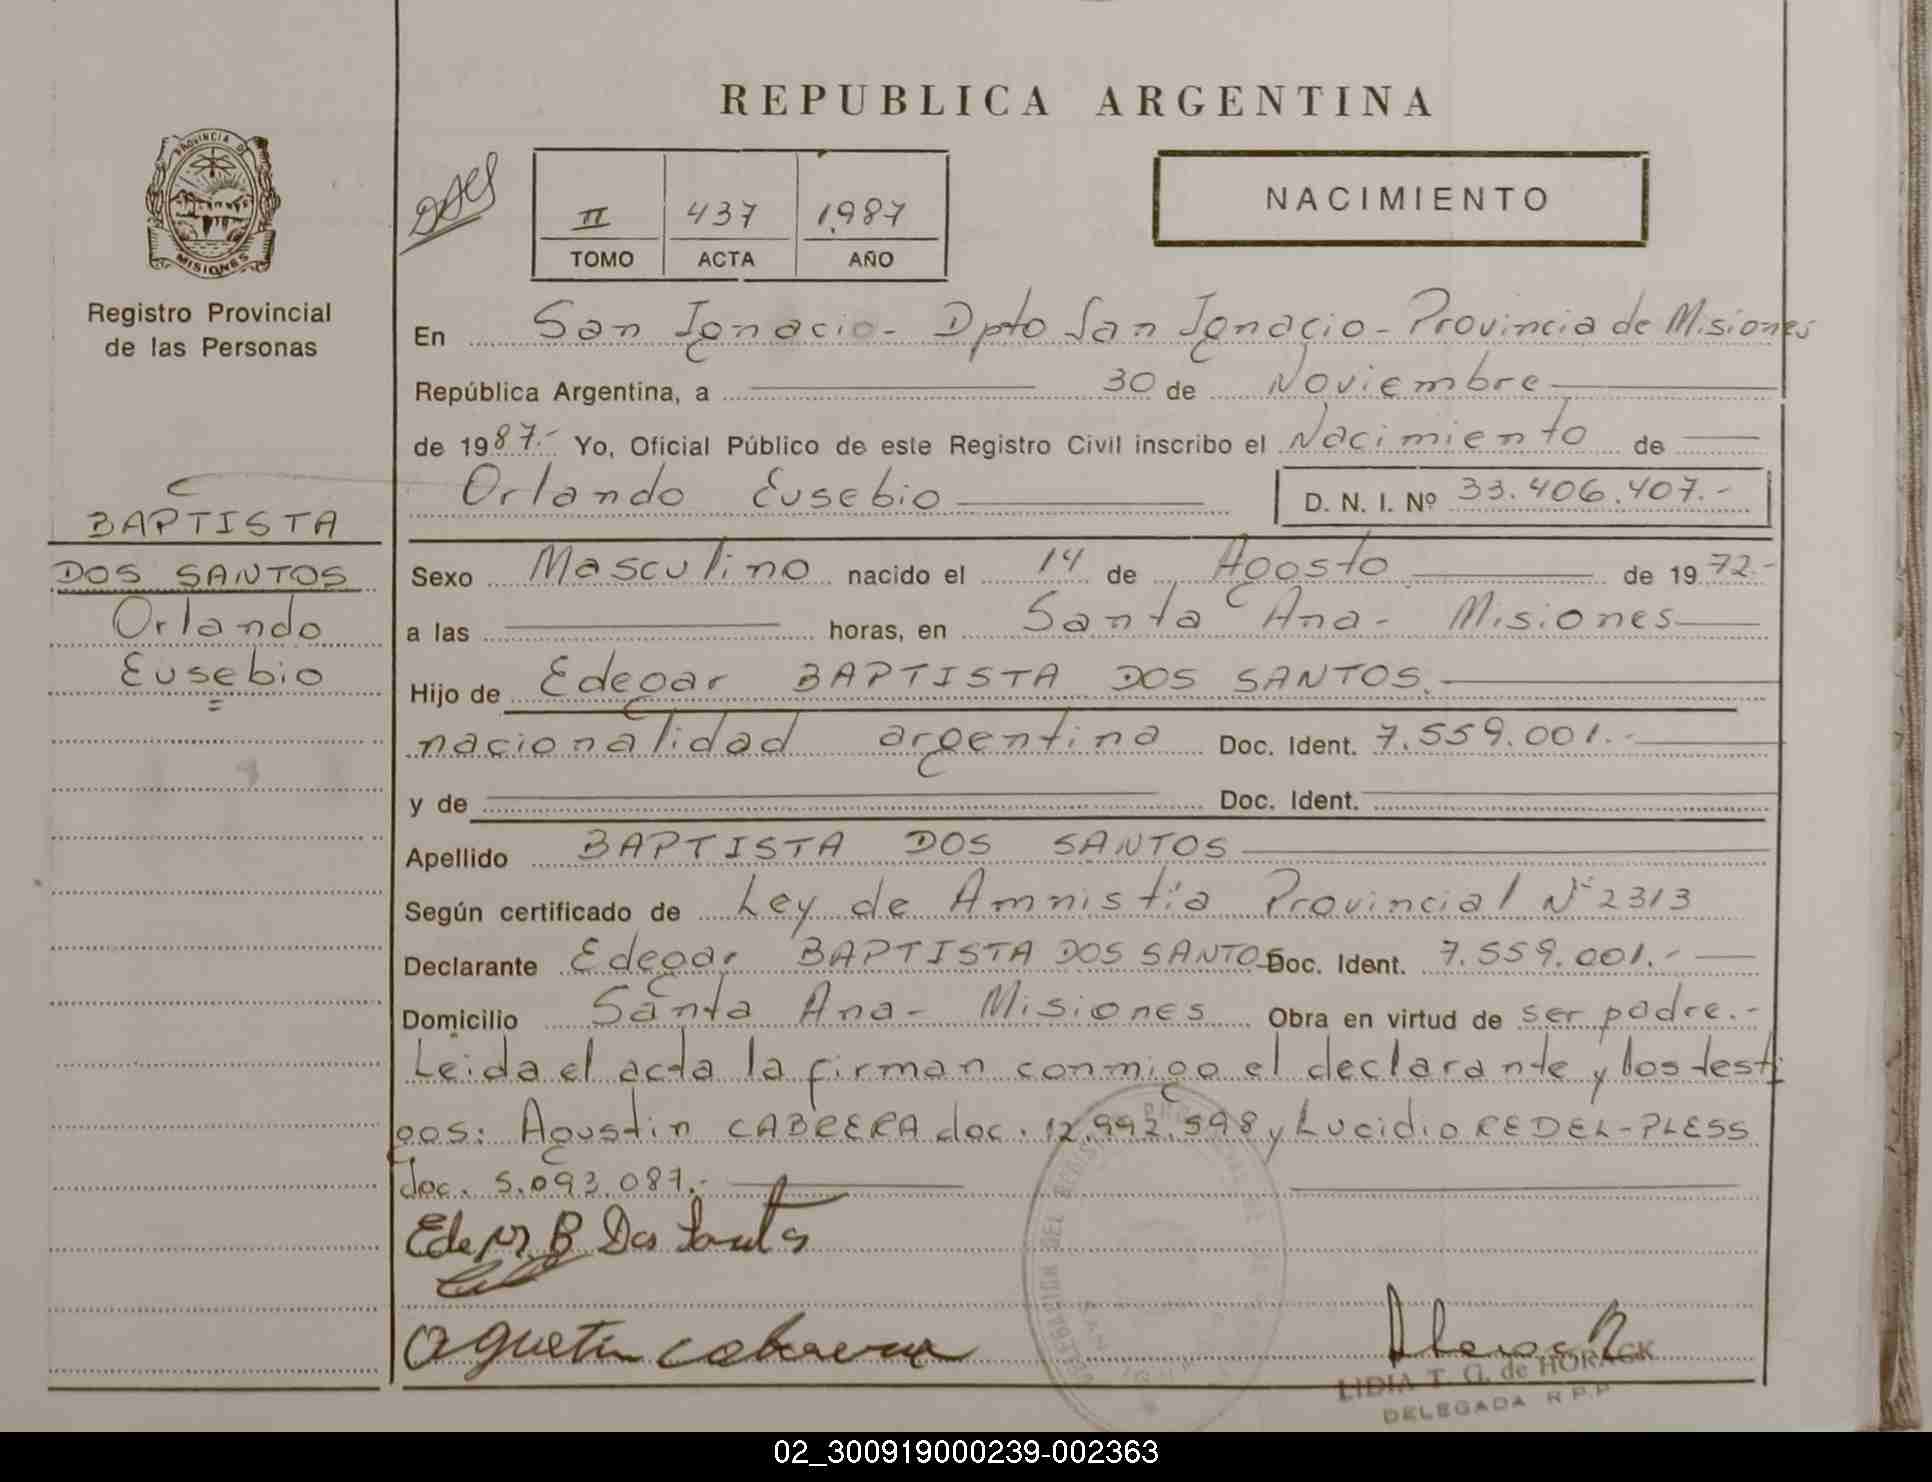 REPUBLICA ARGENTINA
PROVINCIA DE
MISIONES
Registro Provincial
de las Personas
II 437 1987
TOMO ACTA AÑO
NACIMIENTO
En San Ignacio - Dpto San Ignacio - Provincia de Misiones
República Argentina, a 30 de Noviembre
de 1987.- Yo, Oficial Público de este Registro Civil inscribo el Nacimiento de
Orlando Eusebio D. N. I. Nº 33.406.407.-
BAPTISTA
DOS SANTOS
Orlando
Eusebio
Sexo Masculino nacido el 14 de Agosto de 1972.-
a las horas, en Santa Ana - Misiones
Hijo de Edegar BAPTISTA DOS SANTOS.
nacionalidad argentina Doc. Ident. 7.559.001.-
y de Doc. Ident.
Apellido BAPTISTA DOS SANTOS
Según certificado de Ley de Amnistía Provincial Nº 2313
Declarante Edegar BAPTISTA DOS SANTOS Doc. Ident. 7.559.001.-
Domicilio Santa Ana - Misiones Obra en virtud de ser padre.-
Leida el acta la firman conmigo el declarante y los testi
gos: Agustin CABRERA doc. 12.992.598 y Lucidio REDEL-PLESS
doc. 5.093.087.-
Edegar B Dos Santos
Agustin Cabrera
LIDIA T. G. de HORACK
DELEGADA R.P.P.
02_300919000239-002363